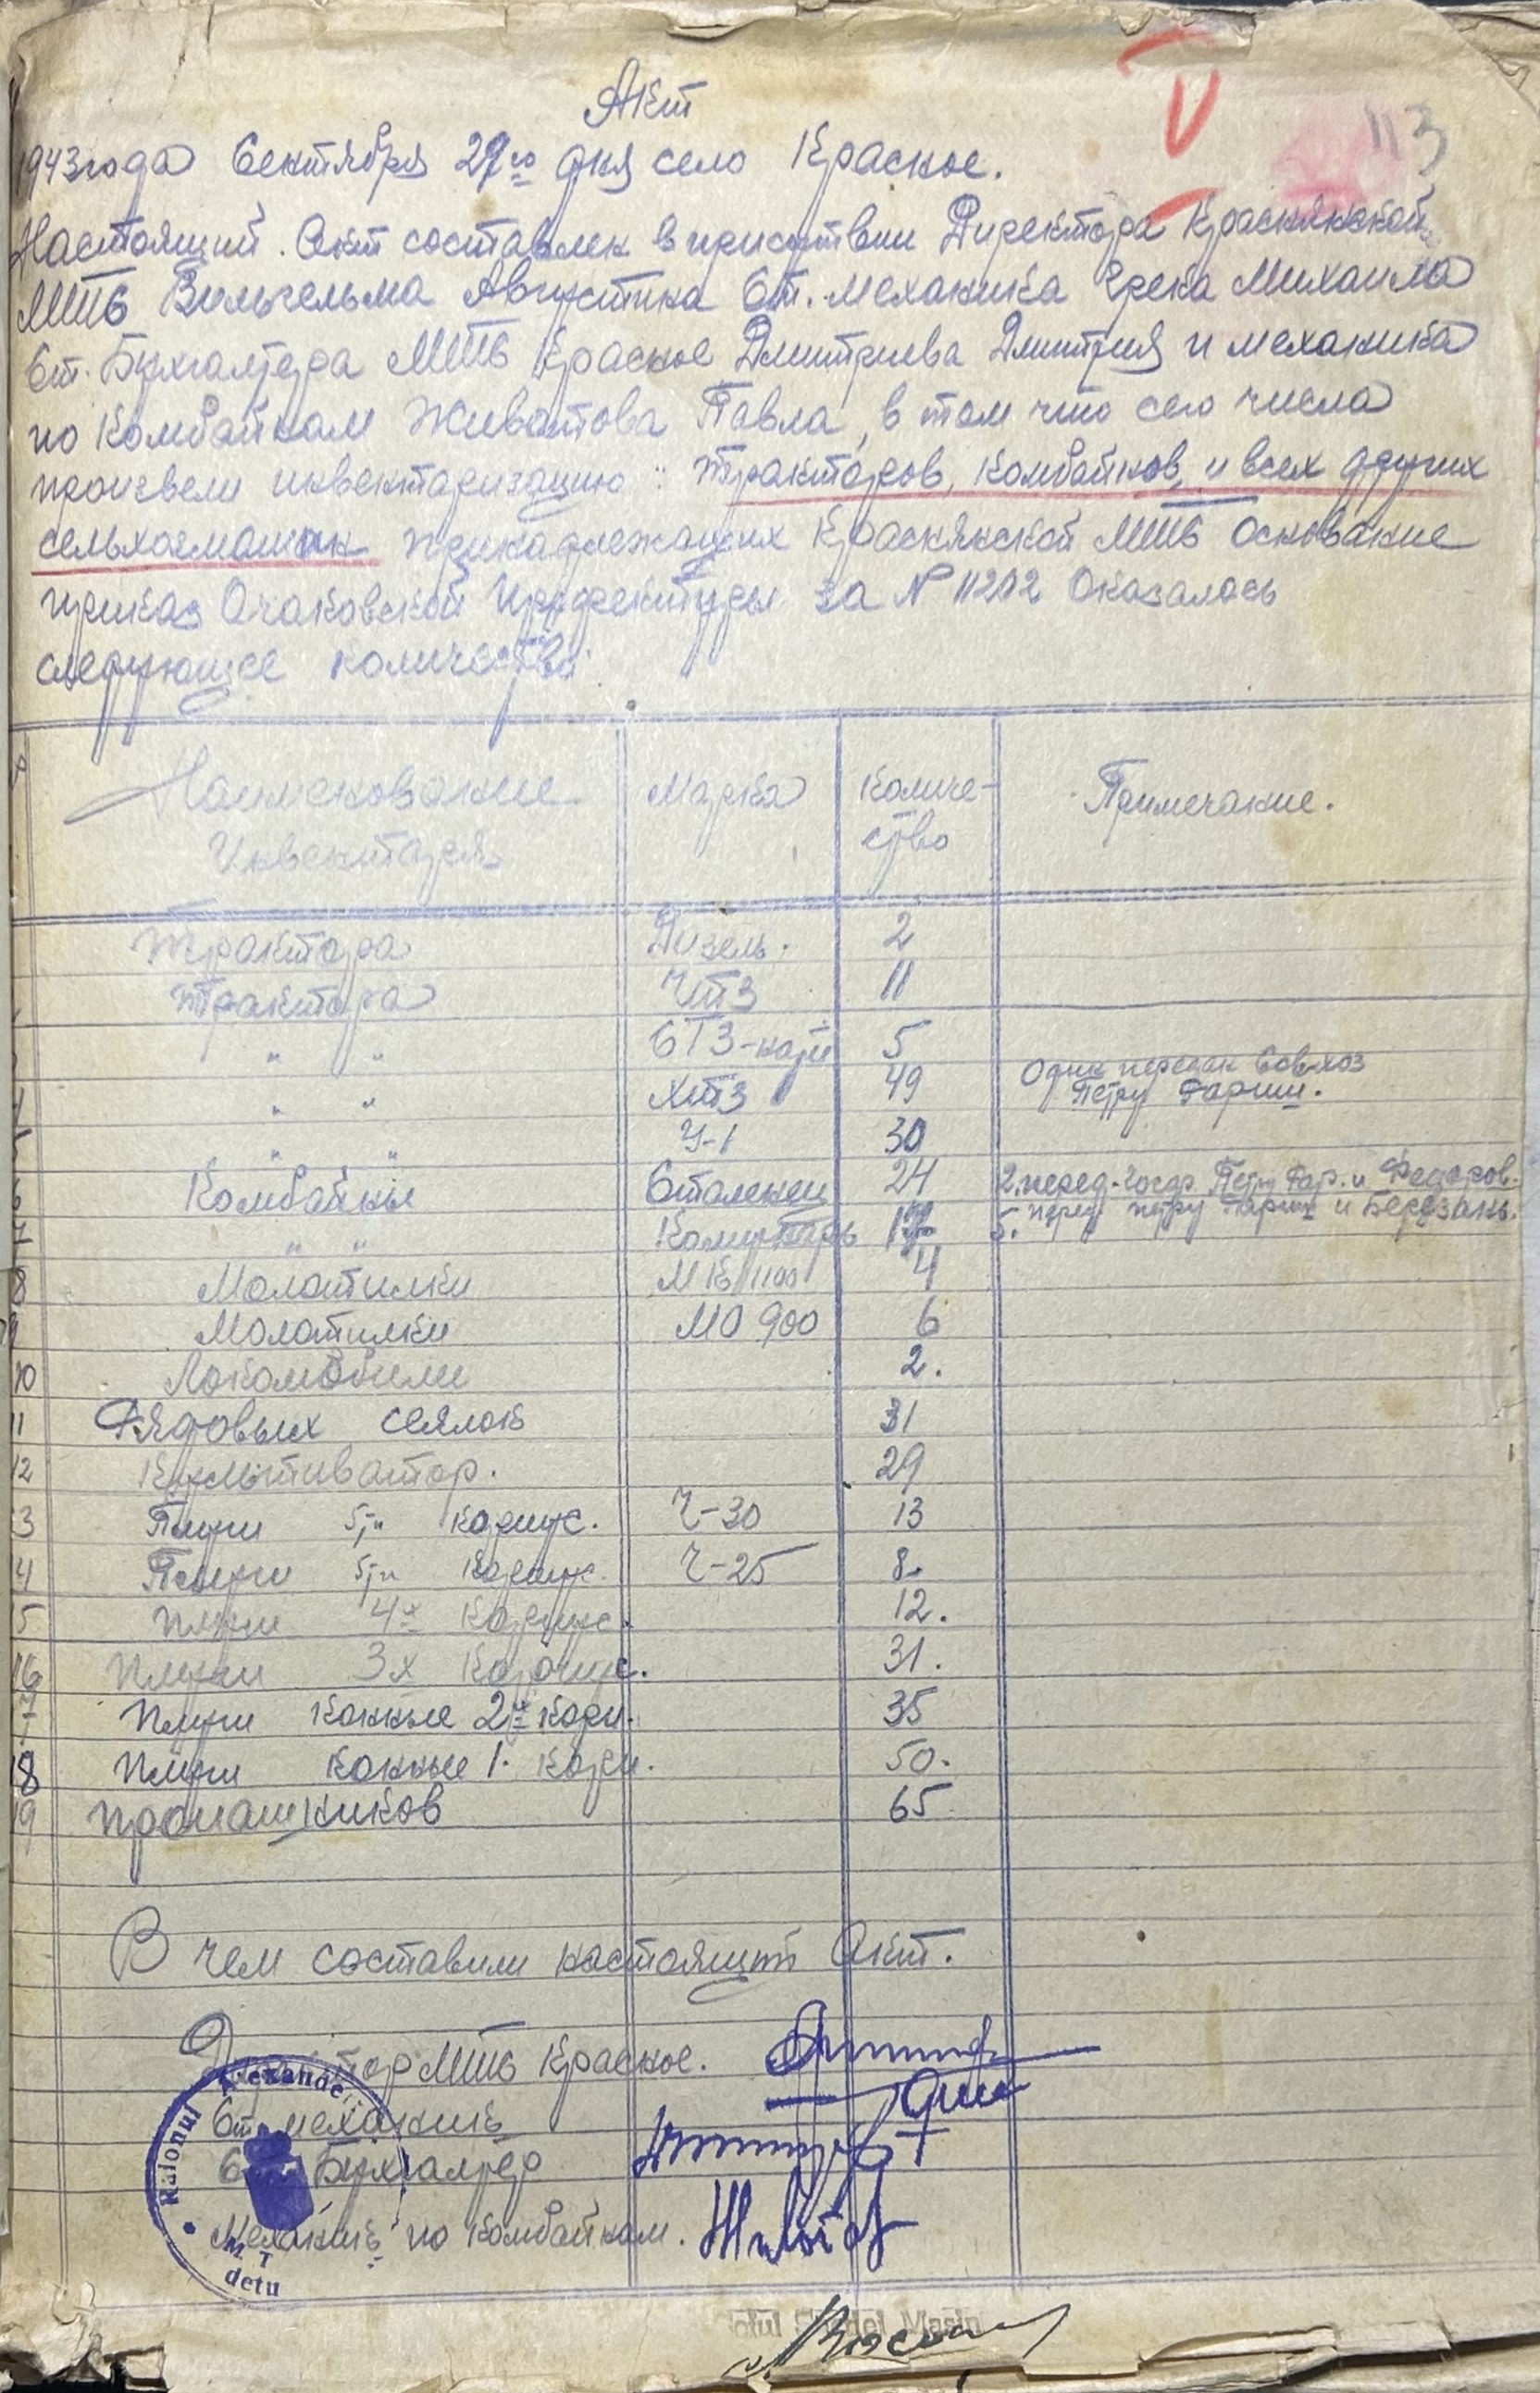 Акт
113
1943 года Сентября 29го дня село Красное.
Настоящий Акт составлен в присутствии Директора Краснянской
МТС Вильгельма Августина Ст. механика Грека Михаила
Ст. Бухгалтера МТС Красное Дмитриева Дмитрия и механика
по Комбайнам Живатова Павла, в том что сего числа
произвели инвентаризацию: Тракторов, Комбайнов, и всех других
сельхозмашин принадлежащих Краснянской МТС Основание
приказ Очаковской Префектуры за № 11202 Оказалось
следующее количество:
Наименование Инвентаря Марка Количество Примечание.
Трактора Дизель. 2
Трактора ЧТЗ 11
" " СТЗ-нати 5
" " ХТЗ 49 Один передан Совхоз Петру Гарии.
" " У-1 30
6 Комбайны Сталенец 24 2. перед. Госдр. Петру Гар. и Федоров.
7 " " Комунаръ 17 5. перед Петру Гарии и Березань.
8 Молотилки МК 1100 4
9 Молотилки МО 900 6
10 Локомобили 2.
11 Рядовых сеялок 31
12 Культиватор. 29
13 Плуги 5-и корпус. Г-30 13
14 Плуги 5-и Корпус. Г-25 8.
15 Плуги 4х Корпус. 12.
16 Плуги 3х Корпус. 31.
17 Плуги Конные 2х корп. 35
18 Плуги Конные 1. Корп. 50.
19 пропашников 65
В чем составили настоящий Акт.
Директор МТС Красное.
Ст. механик
Ст. Бухгалтер
Механик по Комбайнам.
Raionul Alexanderf
M. T
detu